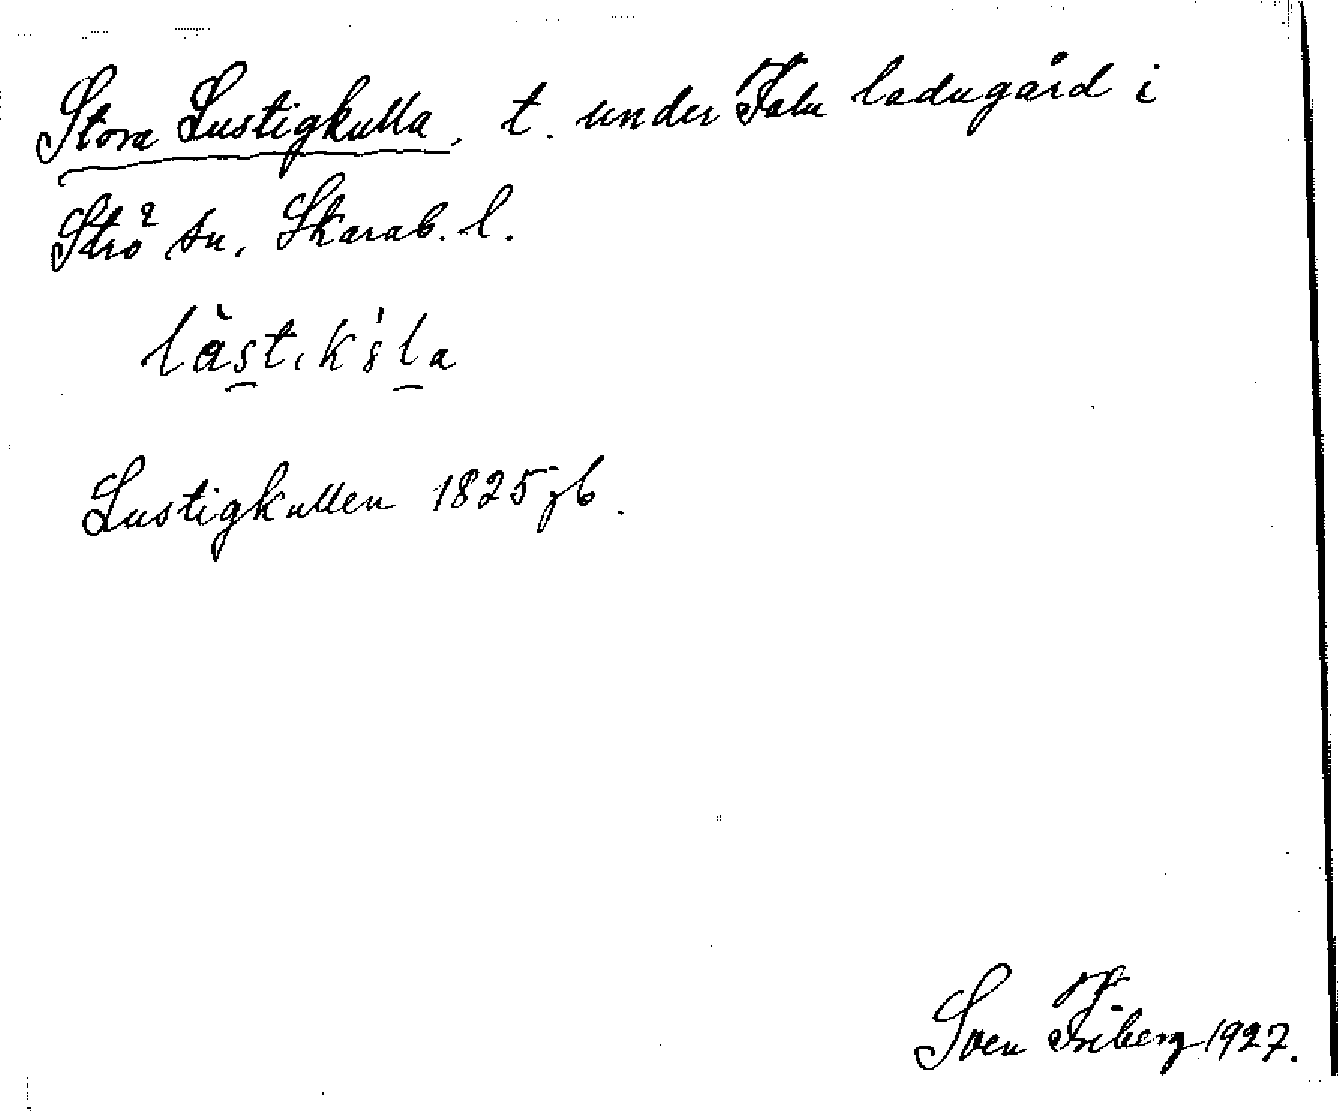 Stora Lustigkulla, t. under Falu ladugård i
Strö sn. Skarab. l.
Lustigkullen 1825 jb.
Sven Friberg 1927.